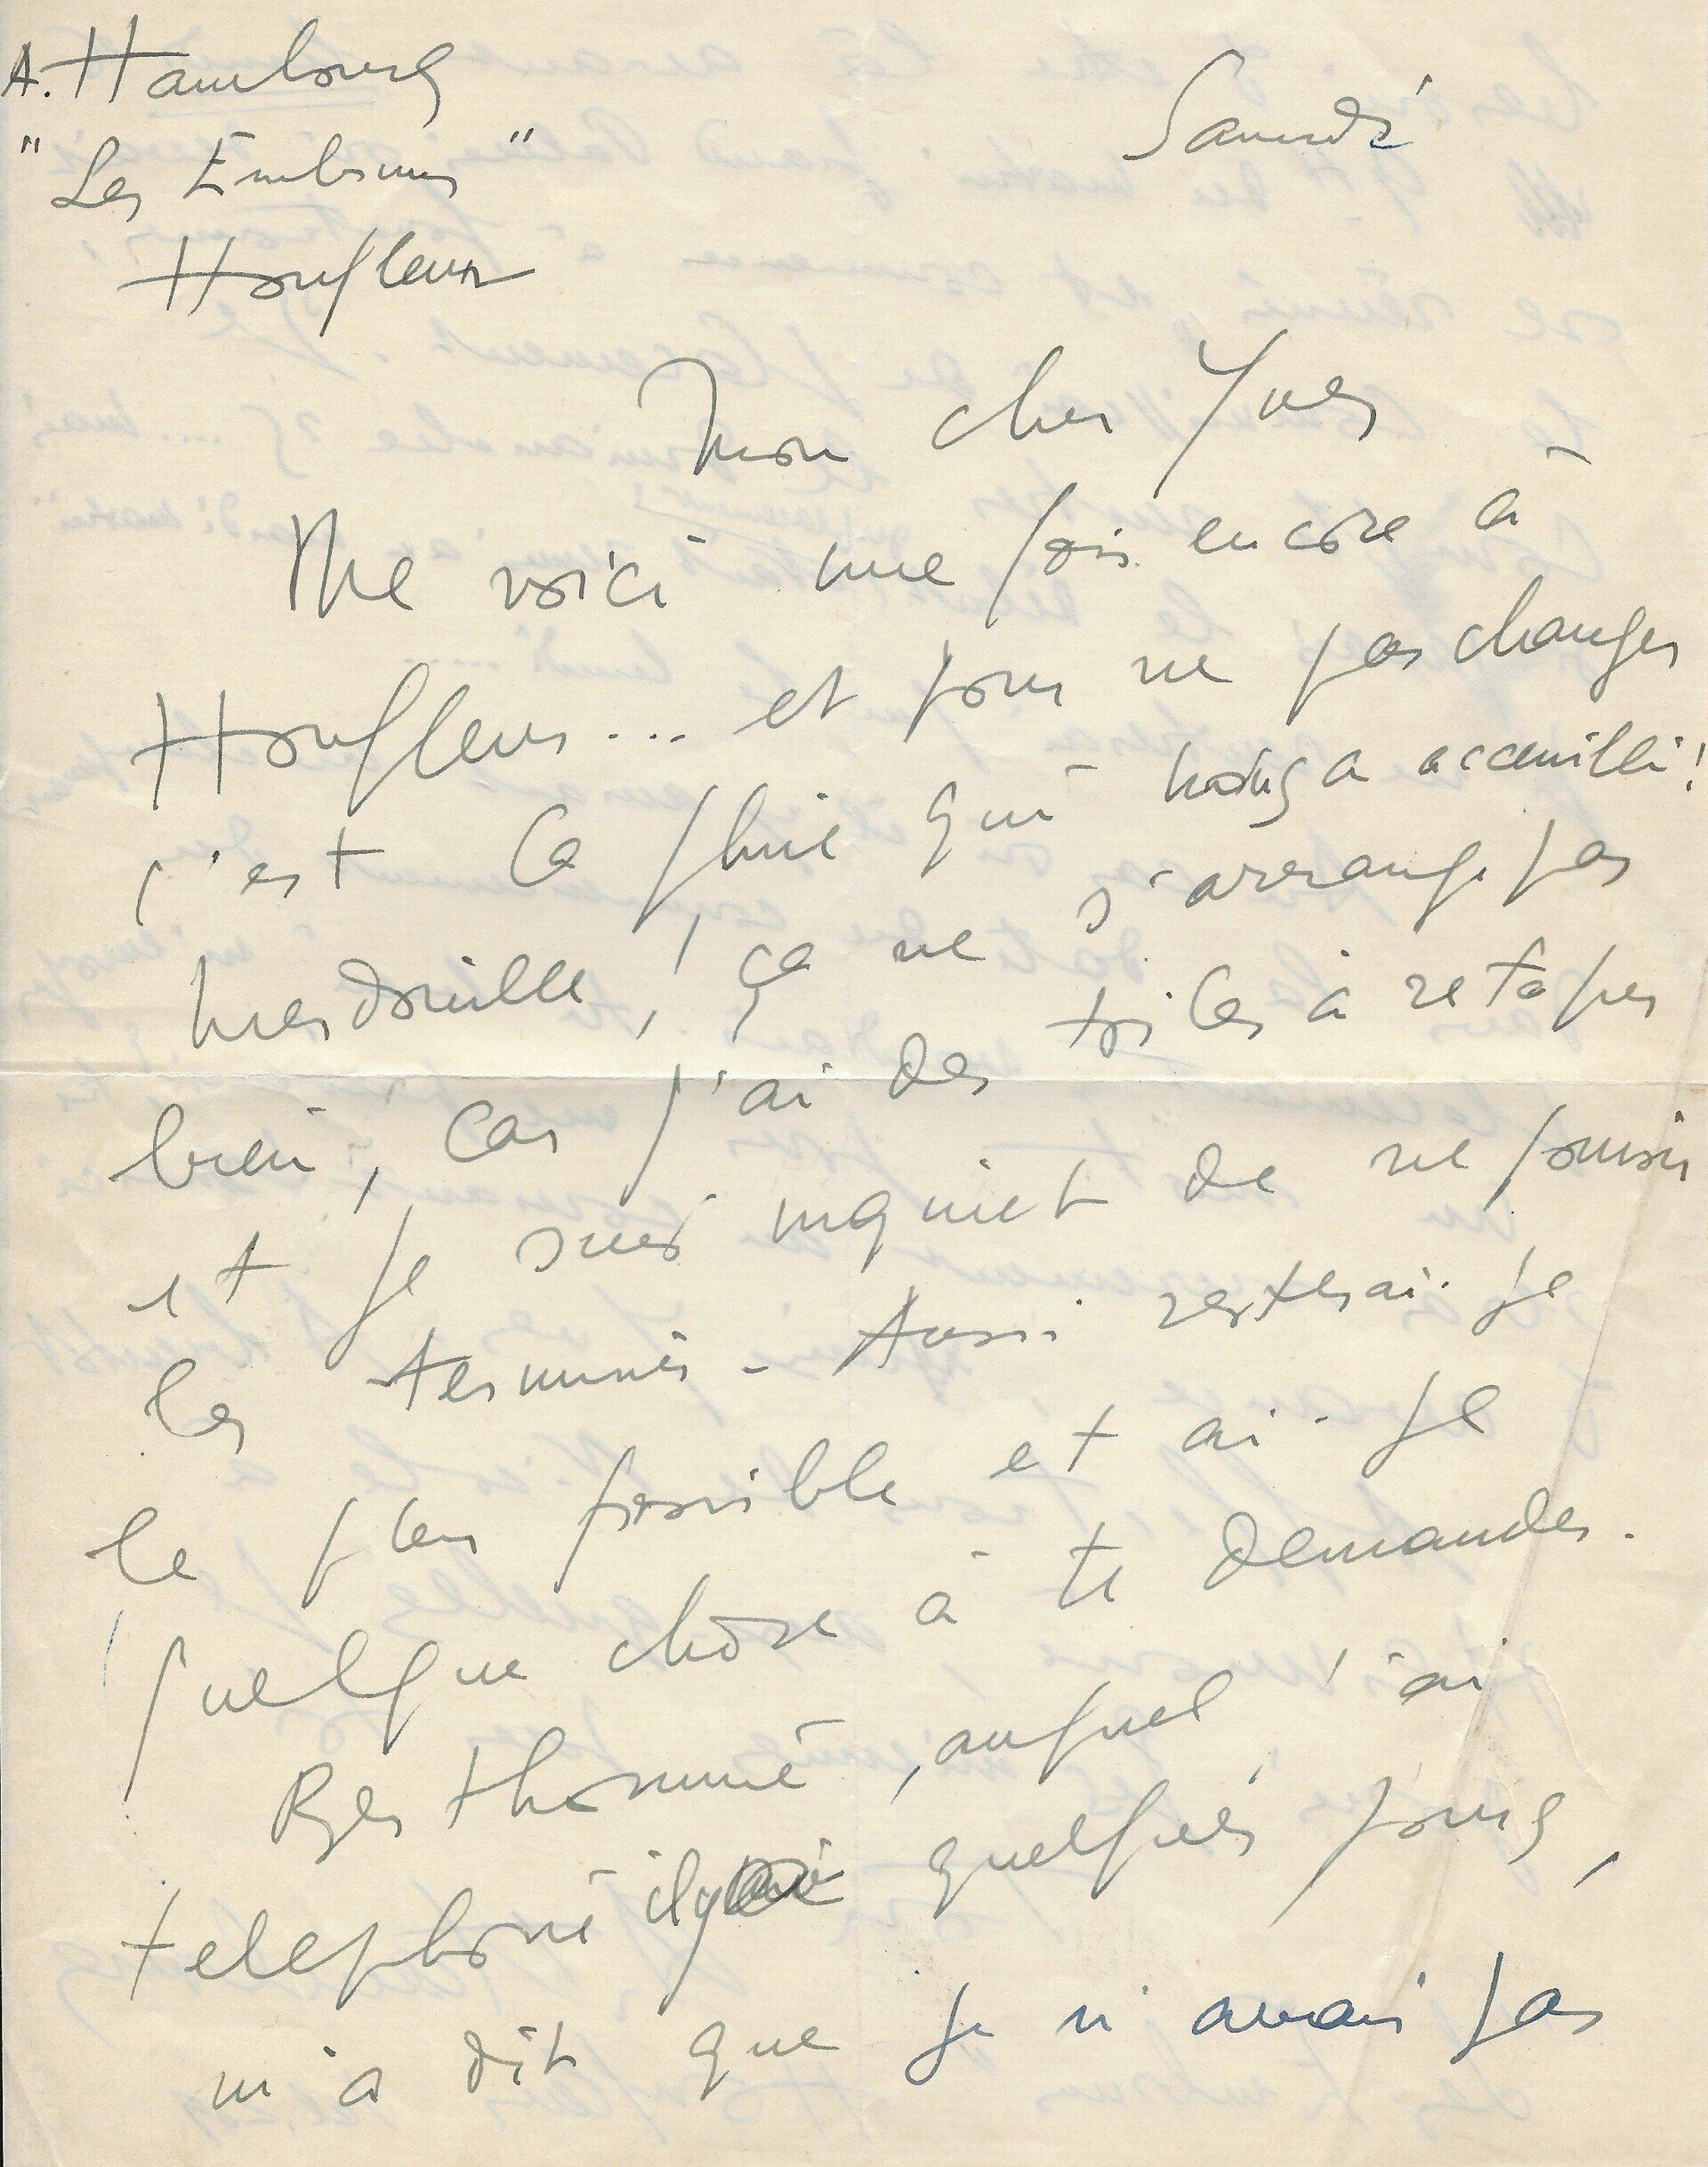 A. Hambourg
"Les Embruns"
Honfleur
Samedi
Mon cher Yves
Me voici une fois encore à
Honfleur... et pour ne pas changer
c'est la pluie qui nous a accueilli!
ça ne s'arrange pas
bien, car j'ai des toiles à retaper
et je suis inquiet de ne pouvoir
les terminer - Aussi resterai-je
le plus possible et ai-je
quelque chose à te demander.
Berthommé, auquel j'ai
telephoné il y a quelques jours,
m'a dit que je n'avais pas